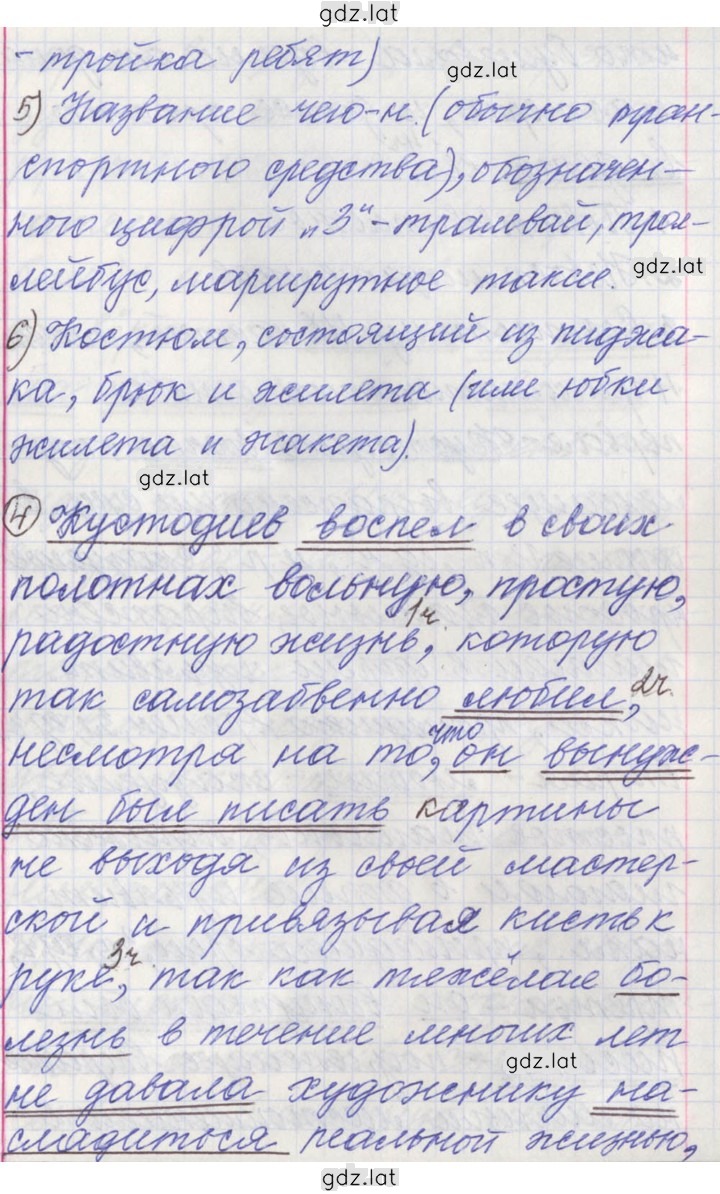 gdz.lat
- тройка ребят)
gdz.lat
5) Название чего-н. (обычно тран-
спортного средства), обозначен-
ного цифрой „3“ - трамвай, трол-
лейбус, маршрутное такси.
gdz.lat
6) Костюм, состоящий из пиджа-
ка, брюк и жилета (или юбки
жилета и жакета).
gdz.lat
4 Кустодиев воспел в своих
полотнах вольную, простую,
радостную жизнь, 1ч. которую
так самозабвенно любил, 2ч.
несмотря на то, что он вынуж-
ден был писать картины
не выходя из своей мастер-
ской и привязывая кисть к
руке, 3ч. так как тяжёлая бо-
лезнь в течение многих лет
gdz.lat
не давала художнику на-
сладиться реальной жизнью,
gdz.lat